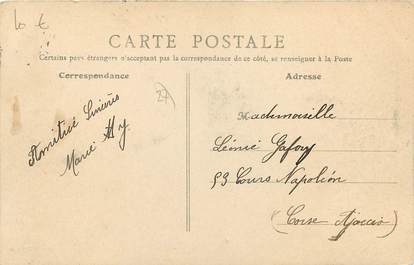 10 €
CARTE POSTALE
Certains pays étrangers n'acceptant pas la correspondance de ce côté, se renseigner à la Poste
Correspondance
Adresse
27
Amitiés Sincères
Marie
Mademoiselle
Léonie
53 Cours Napoléon
(Corse Ajaccio)